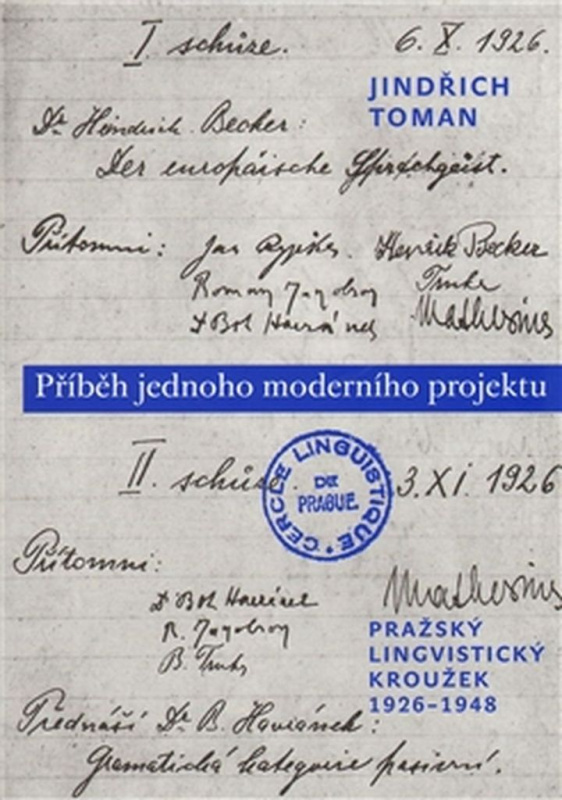 I. schůze. 6. X. 1926.
JINDŘICH
TOMAN
Dr Heinrich Becker:
Der europäische Sprachgeist.
Přítomni: Jan Rypka. Henrik Becker
Roman Jakobson Trnka
Dr Boh Havránek Mathesius
Příběh jednoho moderního projektu
II. schůze. 3. XI. 1926
CERCLE LINGUISTIQUE
DE
PRAGUE
Přítomni:
Mathesius
Dr Boh Havránek
R. Jakobson
B. Trnka
PRAŽSKÝ
LINGVISTICKÝ
KROUŽEK
1926–1948
Přednáší Dr B. Havránek:
Gramatická kategorie pasivní.